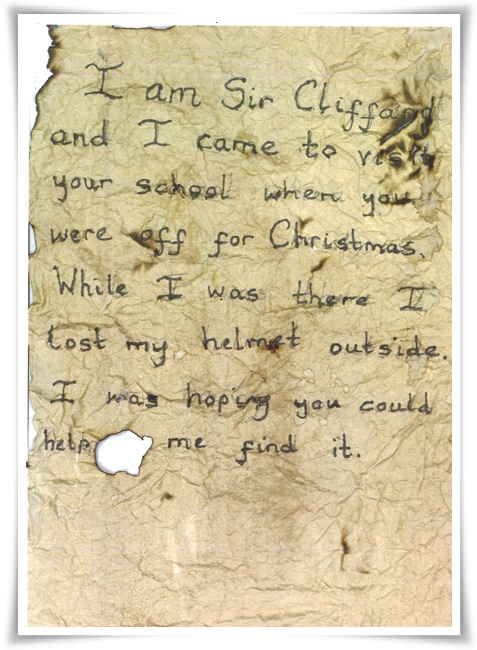 I am Sir Clifford
and I came to visit
your school when you
were off for Christmas.
While I was there I
lost my helmet outside.
I was hoping you could
help me find it.